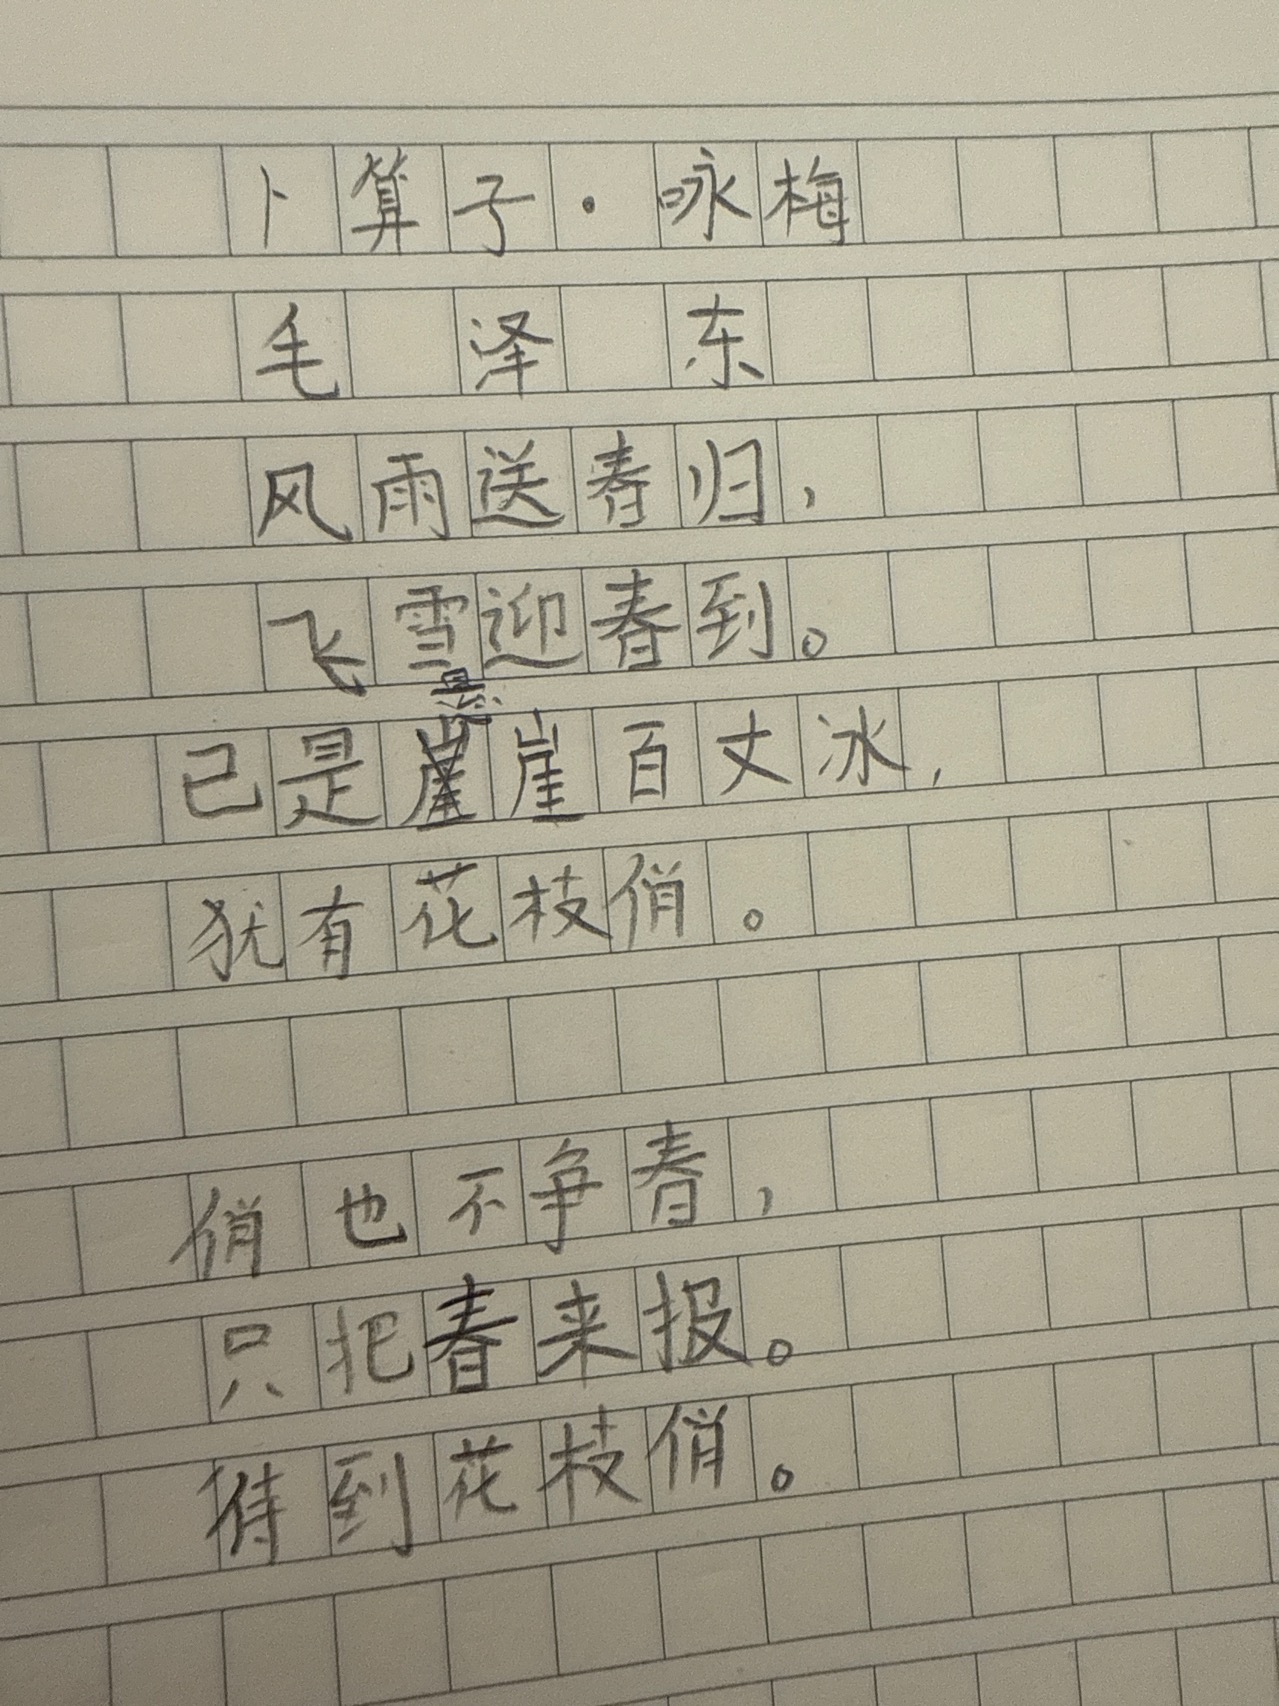 卜算子·咏梅
毛泽东
风雨送春归，
飞雪迎春到。
已是悬崖百丈冰，
犹有花枝俏。
俏也不争春，
只把春来报。
待到花枝俏。